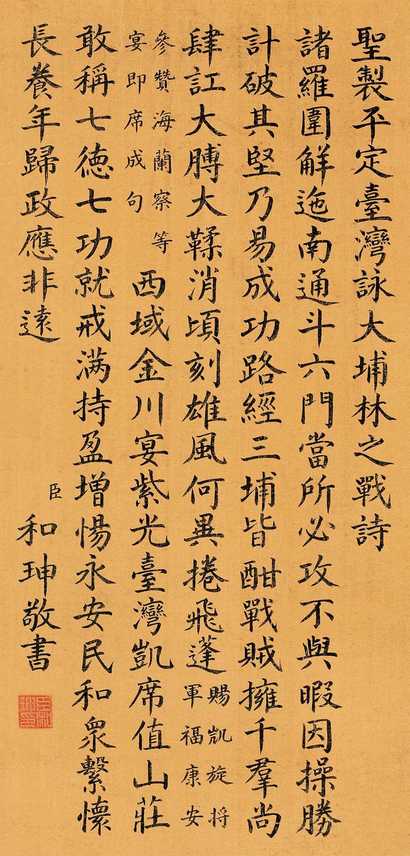 聖製平定臺灣詠大埔林之戰詩
諸羅圍解迤南通斗六門當所必攻不與暇因操勝
計破其堅乃易成功路經三埔皆酣戰賊擁千羣尚
肆訌大膊大鞣消頃刻雄風何異捲飛蓬賜凱旋将
軍福康安
參贊海蘭察等
宴即席成句
西域金川宴紫光臺灣凱席值山莊
敢稱七德七功就戒满持盈增惕永安民和衆繫懷
長養年歸政應非遠
臣
和珅敬書